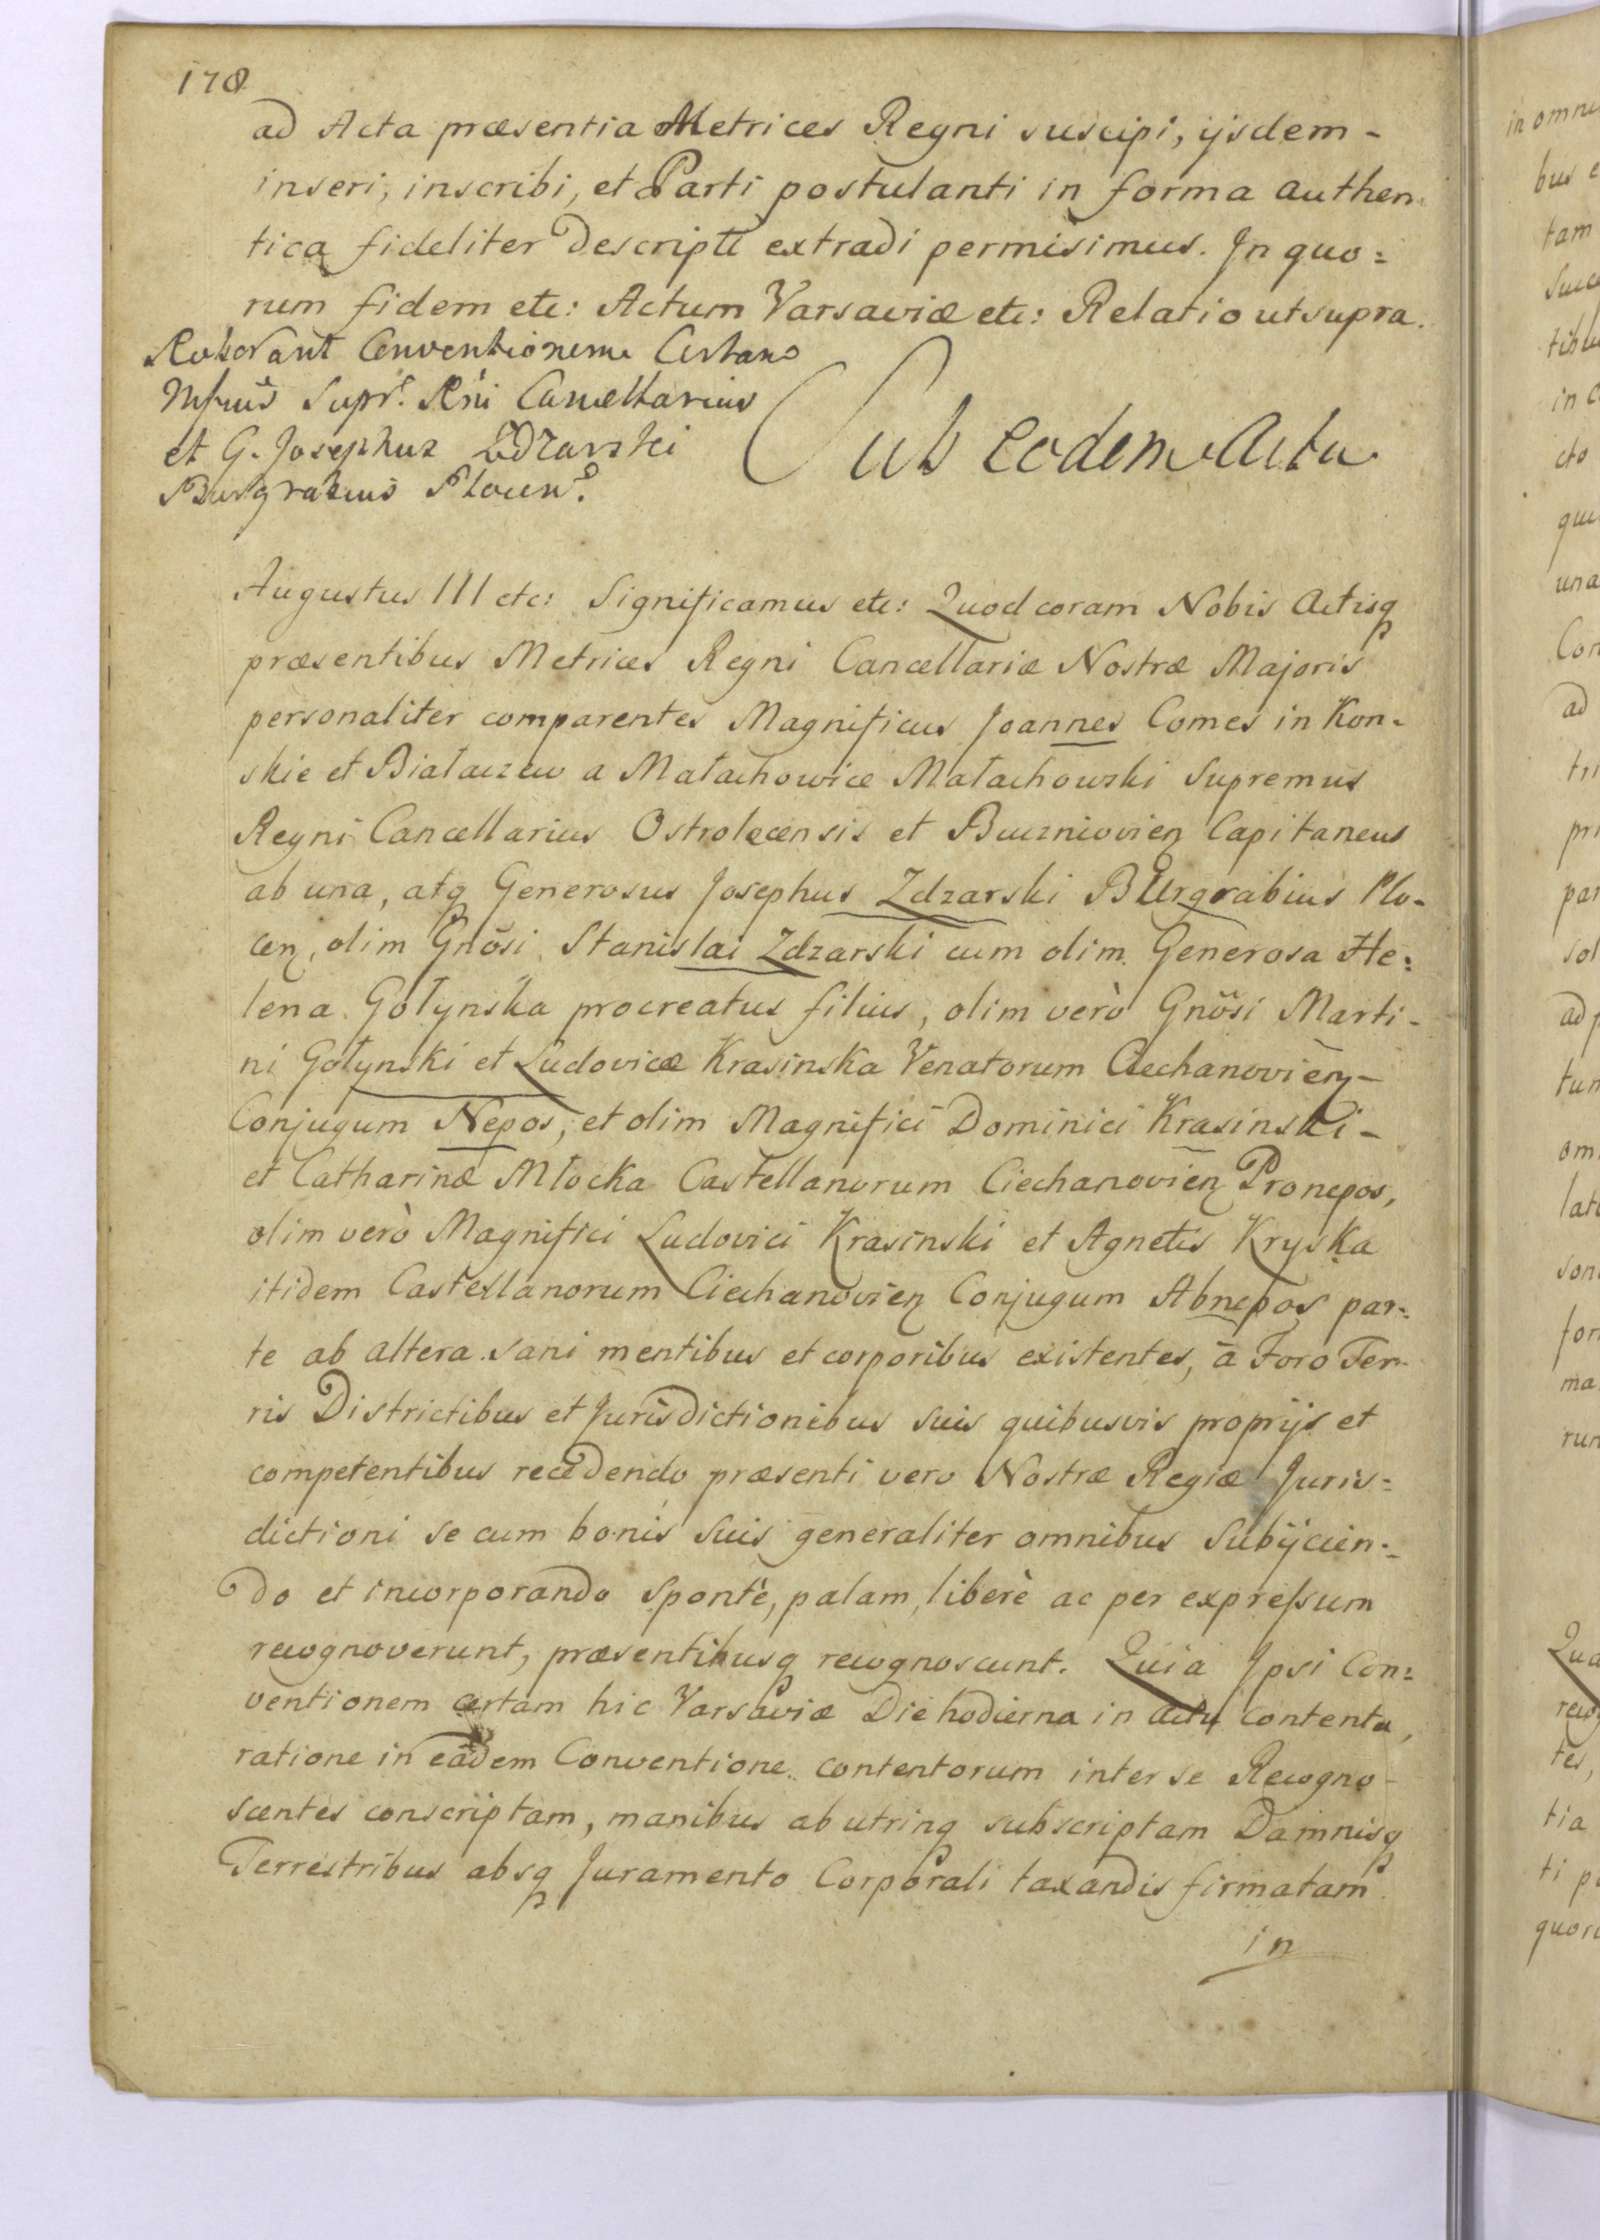 178
ad Acta præsentia Metrices Regni suscipi, ijsdem -
inseri, inscribi, et Parti postulanti in forma authen-
tica fideliter descripti extradi permisimus. In quo=
rum fidem etc: Actum Varsaviæ etc: Relatio ut supra.
Roborant Conventionem Certam
Mfcus Supr. Rni Cancellarius
et G. Josephus Zdzarski
Burgrabius Plocen.
Sub eodem Actu
Augustus III etc: Significamus etc: Quod coram Nobis Actisq
præsentibus Metrices Regni Cancellariæ Nostræ Majoris
personaliter comparentes Magnificus Joannes Comes in Kon-
skie et Białaczew a Małachowice Małachowski Supremus
Regni Cancellarius Ostrolecensis et Capitaneus
ab una, atq Generosus Josephus Zdzarski Burgrabius Plo-
cen, olim Gnosi Stanislai Zdzarski cum olim Generosa He=
lena Gołynska procreatus filius, olim verò Gnosi Marti-
ni Gołynski et Ludovicæ Krasinska Venatorum Ciechanovien -
Conjugum Nepos, et olim Magnifici Dominici Krasinski -
et Catharinæ Młocka Castellanorum Ciechanovien Pronepos,
olim verò Magnifici Ludovici Krasinski et Agnetis Kryska
itidem Castellanorum Ciechanovien Conjugum Abnepos par=
te ab altera sani mentibus et corporibus existentes, à Foro Ter-
ris Districtibus et Jurisdictionibus suis quibusvis proprijs et
competentibus recedendo præsenti vero Nostræ Regiæ Juris=
dictioni se cum bonis suis generaliter omnibus Subijcien=
do et incorporando Spontè, palam, liberè ac per expressum
recognoverunt, præsentibusq recognoscunt. Quia Ipsi Con=
ventionem certam hic Varsaviæ Die hodierna in actu contenta,
ratione in eâdem Conventione contentorum inter se Recogno-
scentes conscriptam, manibus ab utrinq subscriptam Damnisq
Terrestribus absq Juramento Corporali taxandis firmatam
in